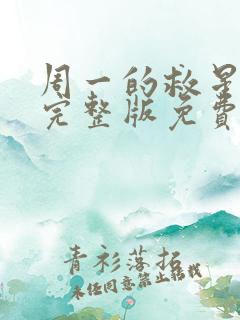 周一的救星
完整版免费
青衫落拓
未经同意禁止转载